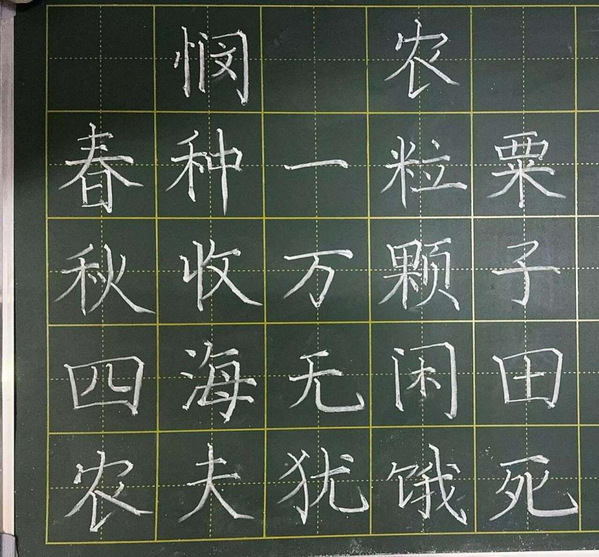 悯 农
春种一粒粟
秋收万颗子
四海无闲田
农夫犹饿死